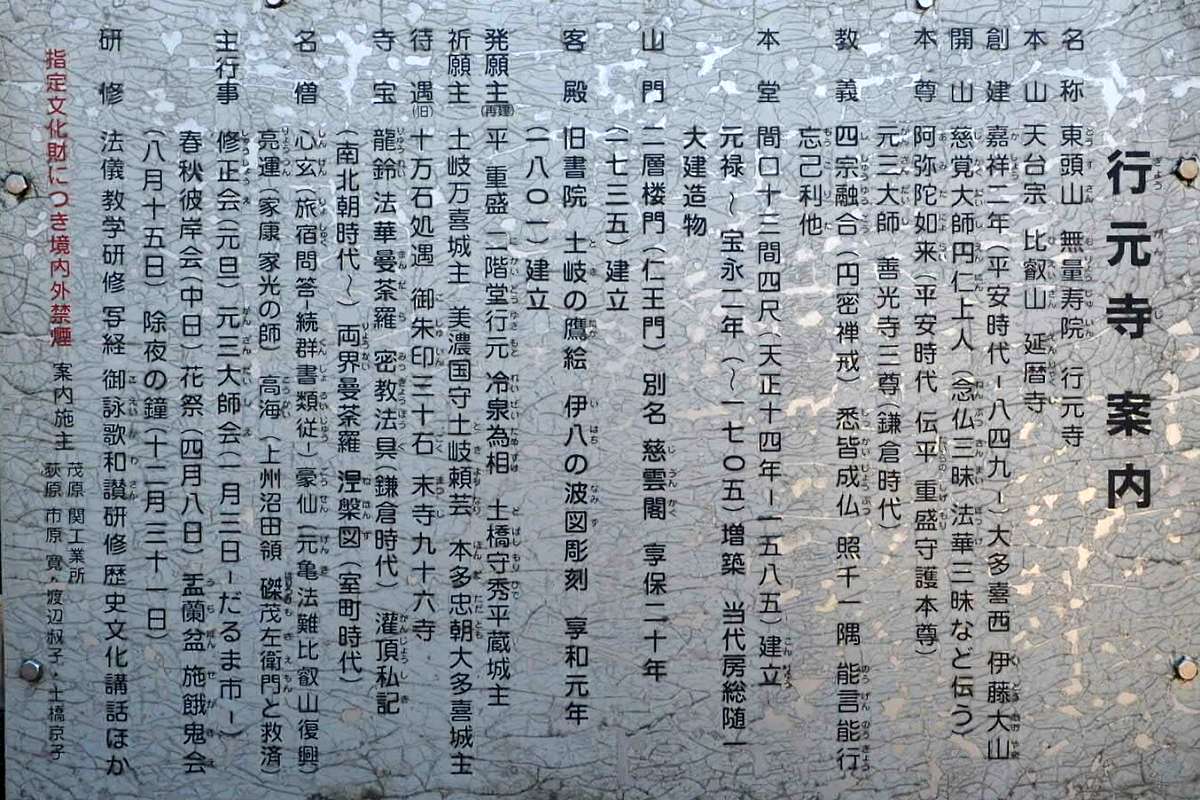 行元寺 案内
名称 東頭山 無量寿院 行元寺
本山 天台宗 比叡山 延暦寺
創建 嘉祥二年(平安時代-八四九-)大多喜西 伊藤大山
開山 慈覚大師円仁上人(念仏三昧 法華三昧など伝う)
本尊 阿弥陀如来(平安時代 伝平 重盛守護本尊)
元三大師 善光寺三尊(鎌倉時代)
教義 四宗融合(円密禅戒) 悉皆成仏 照千一隅 能言能行
忘己利他
本堂 間口十三間四尺(天正十四年-一五八五)建立
元禄~宝永二年(~一七〇五)増築 当代房総随一
大建造物
山門 二層楼門(仁王門)別名 慈雲閣 享保二十年
(一七三五)建立
客殿 旧書院 土岐の鷹絵 伊八の波図彫刻 享和元年
(一八〇一)建立
発願主(再建) 平 重盛 二階堂行元 冷泉為相 土橋守秀平蔵城主
祈願主 土岐万喜城主 美濃国守土岐頼芸 本多忠朝大多喜城主
待遇(旧) 十万石処遇 御朱印三十石 末寺九十六寺
寺宝 龍鈴 法華曼荼羅 密教法具(鎌倉時代) 灌頂私記
(南北朝時代~) 両界曼荼羅 涅槃図(室町時代)
名僧 心玄(旅宿問答-続群書類従-)豪仙(元亀法難比叡山復興)
亮運(家康 家光の師) 高海(上州沼田領 磔茂左衛門と救済)
主行事 修正会(元旦) 元三大師会(一月三日-だるま市-)
春秋彼岸会(中日) 花祭(四月八日) 盂蘭盆 施餓鬼会
(八月十五日) 除夜の鐘(十二月三十一日)
研修 法儀 教学研修 写経 御詠歌和讃研修 歴史文化講話ほか
指定文化財につき境内外禁煙 案内施主 茂原 関工業所
荻原 市原 寛・渡辺叔子・土橋京子